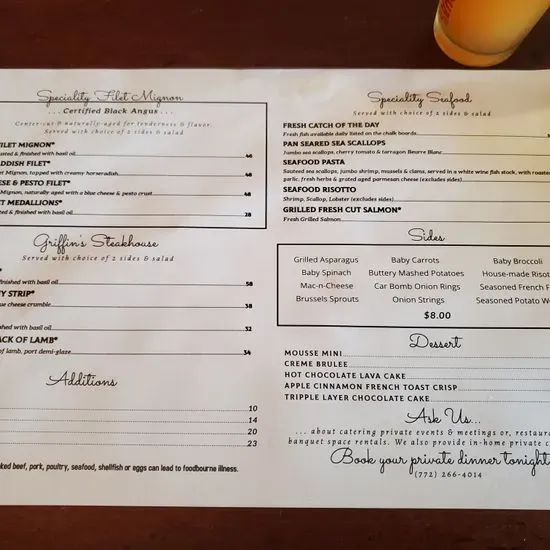 Speciality Filet Mignon
... Certified Black Angus ...
Center-cut & naturally-aged for tenderness & flavor.
Served with choice of 2 sides & salad
FILET MIGNON*
& finished with basil oil 46
DDISH FILET*
Mignon, topped with creamy horseradish 48
ESE & PESTO FILET*
Mignon, naturally aged with a blue cheese & pesto crust 48
ET MEDALLIONS*
& finished with basil oil 28
Griffin's Steakhouse
Served with choice of 2 sides & salad
*
finished with basil oil 58
Y STRIP*
ue cheese crumble 38
shed with basil oil 32
ACK OF LAMB*
of lamb, port demi-glaze 34
Additions
10
14
20
23
oked beef, pork, poultry, seafood, shellfish or eggs can lead to foodbourne illness.
Speciality Seafood
Served with choice of 2 sides & salad
FRESH CATCH OF THE DAY
Fresh fish available daily listed on the chalk boards
PAN SEARED SEA SCALLOPS
Jumbo sea scallops, cherry tomato & tarragon Beurre Blanc
SEAFOOD PASTA
Sauteed sea scallops, jumbo shrimp, mussels & clams, served in a white wine fish stock, with roaste
garlic, fresh herbs & grated aged parmesan cheese (excludes sides)
SEAFOOD RISOTTO
Shrimp, Scallop, Lobster (excludes sides)
GRILLED FRESH CUT SALMON*
Fresh Grilled Salmon
Sides
Grilled Asparagus Baby Carrots Baby Broccoli
Baby Spinach Buttery Mashed Potatoes House-made Risot
Mac-n-Cheese Car Bomb Onion Rings Seasoned French F
Brussels Sprouts Onion Strings Seasoned Potato We
$8.00
Dessert
MOUSSE MINI
CREME BRULEE
HOT CHOCOLATE LAVA CAKE
APPLE CINNAMON FRENCH TOAST CRISP
TRIPPLE LAYER CHOCOLATE CAKE
Ask Us...
... about catering private events & meetings or, restaur
banquet space rentals. We also provide in-home private c
Book your private dinner tonight
(772) 266-4014